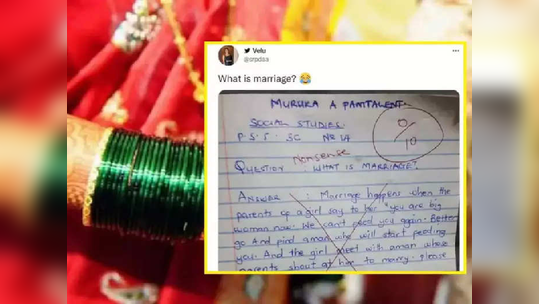 Velu
@srpdaa
What is marriage? 😂
MURUKA A
SOCIAL STUDIES.
0
10
NONSENSE
QUESTION : WHAT IS MARRIAGE?
ANSWER : Marriage happens when the
parents of a girl say to her "you are big
woman now. We can't feed you again. Better
go And find aman who will start feeding
you. And the girl meet with aman whose
parents shout at him to marry. please